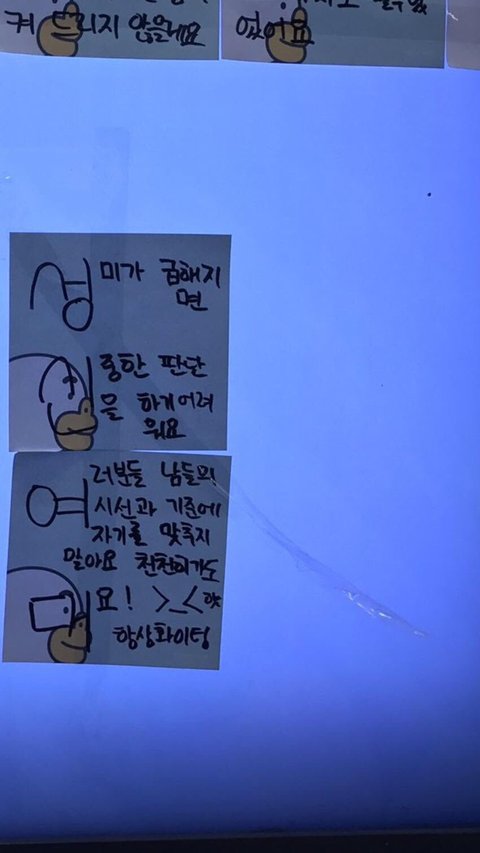 켜 드리지 않을게요
었어요
성미가 급해지
면
중한 판단
을 하기어려
워요
여러분들 남들의
시선과 기준에
자기를 맞추지
말아요 천천히가도
요! >_<
항상화이팅